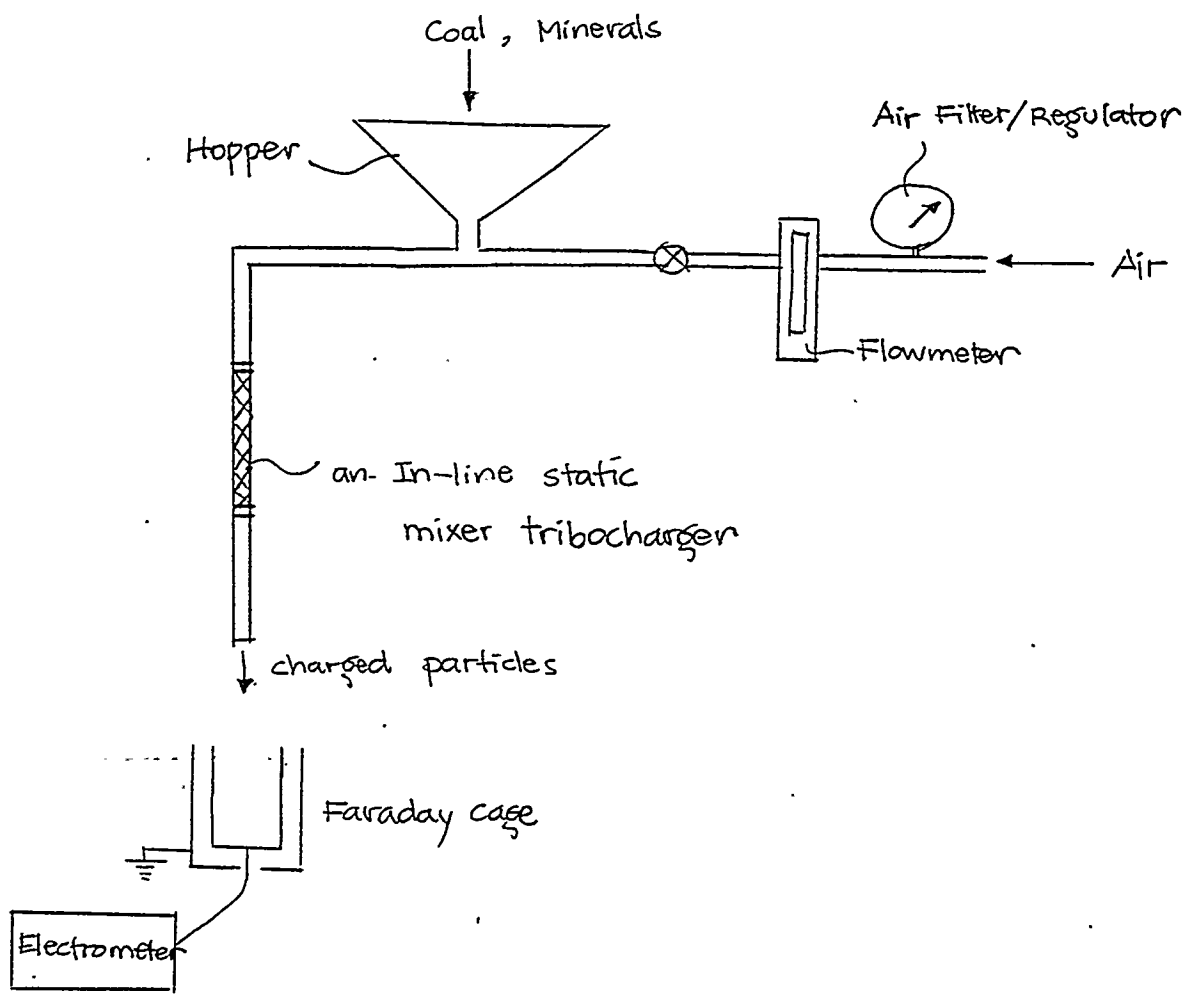 Coal, Minerals
Air Filter/Regulator
Hopper
Air
Flowmeter
an In-line static
mixer tribocharger
charged particles
Faraday cage
Electrometer